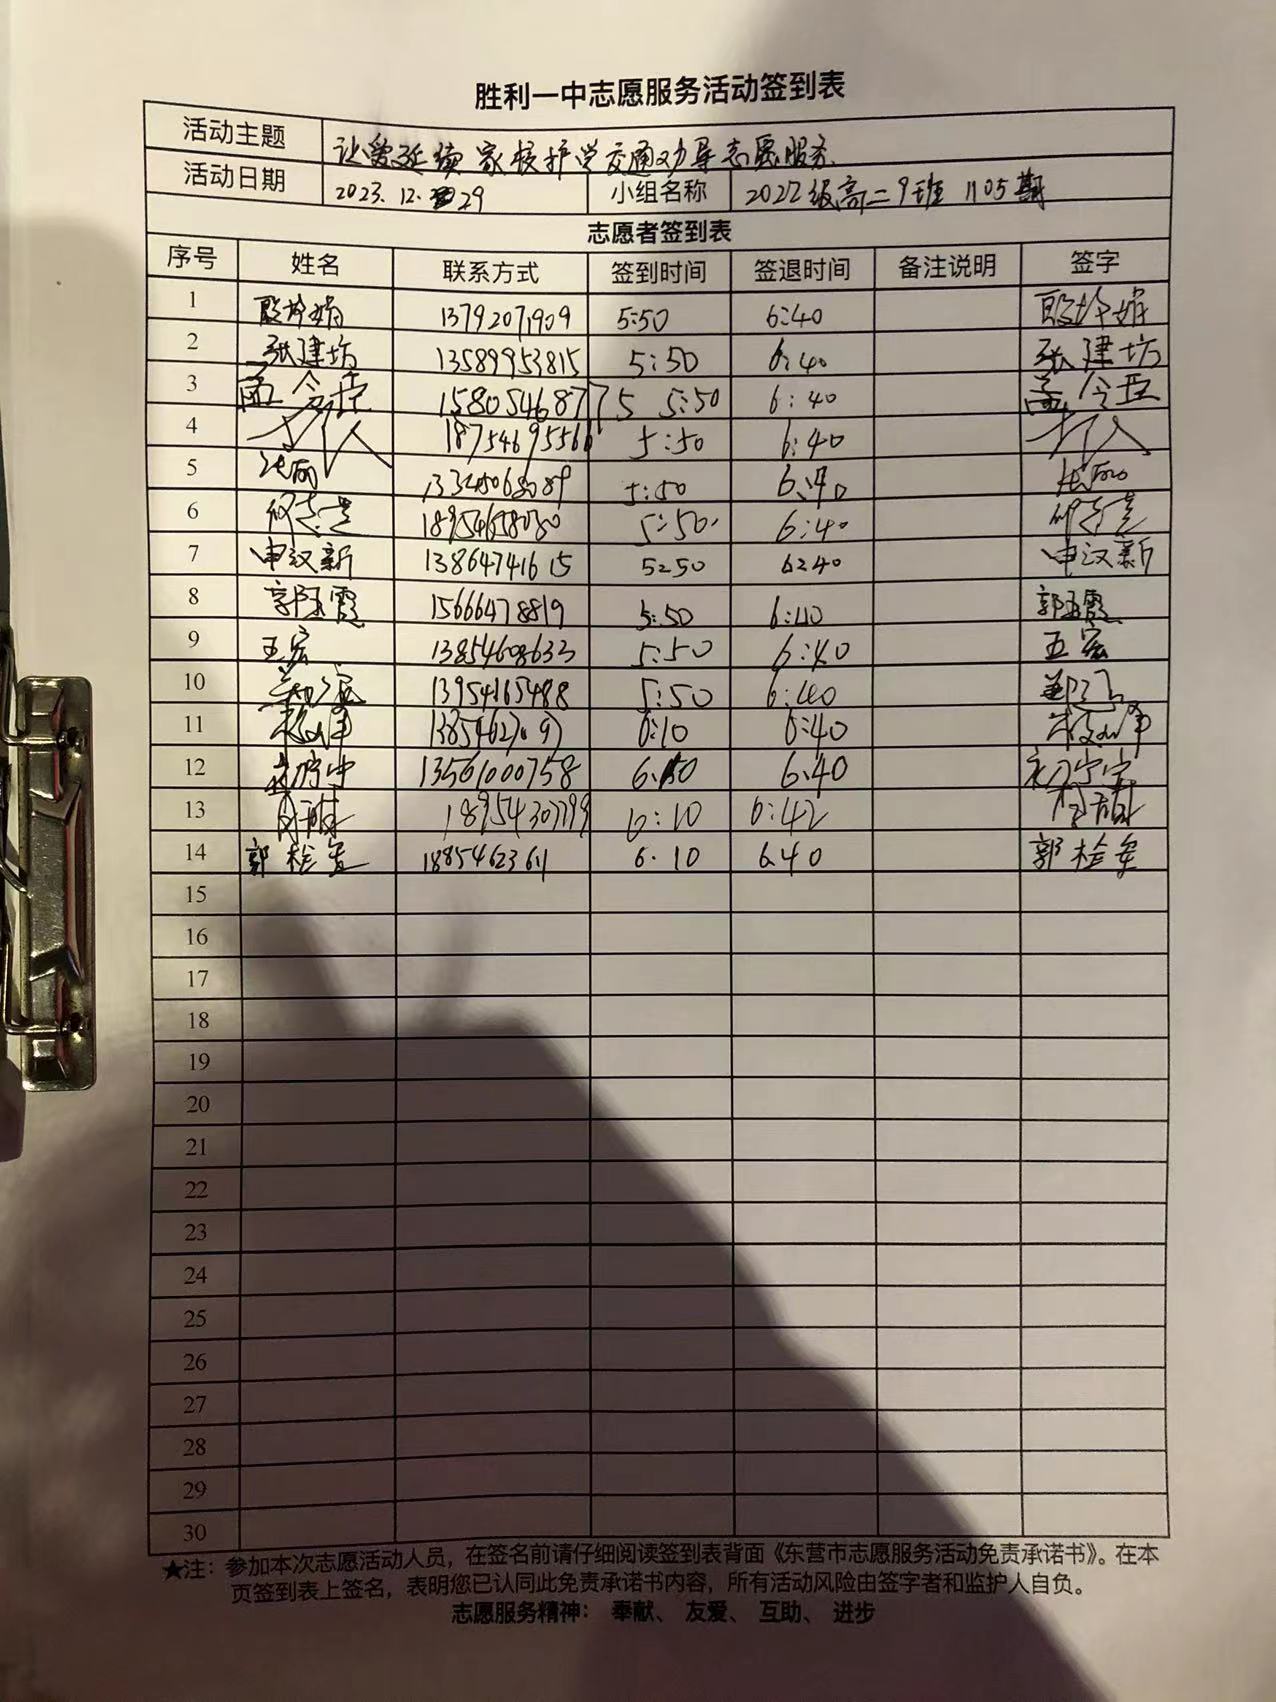 胜利一中志愿服务活动签到表
活动主题 让爱延续 家校护学交通劝导志愿服务
活动日期 2023.12.29 小组名称 2022级高二9班 1105期
志愿者签到表
序号 姓名 联系方式 签到时间 签退时间 备注说明 签字
1 13792071909 5:50 6:40
2 张建坊 13589953815 5:50 6:40 张建坊
3 孟令臣 5:50 6:40 孟令臣
4 5:50 6:40
5 5:50 6:40
6 5:50 6:40
7 申汉新 13864741615 5:50 6:40 申汉新
8 郭玉霞 15666478819 5:50 6:40 郭玉霞
9 王宏 13854608633 5:50 6:40 王宏
10 13954165488 5:50 6:40
11 6:10 6:40
12 13561000758 6:40
13 6:10 6:42
14 郭 6:10 6:40 郭
15
16
17
18
19
20
21
22
23
24
25
26
27
28
29
30
★注：参加本次志愿活动人员，在签名前请仔细阅读签到表背面《东营市志愿服务活动免责承诺书》。在本
页签到表上签名，表明您已认同此免责承诺书内容，所有活动风险由签字者和监护人自负。
志愿服务精神： 奉献、 友爱、 互助、 进步